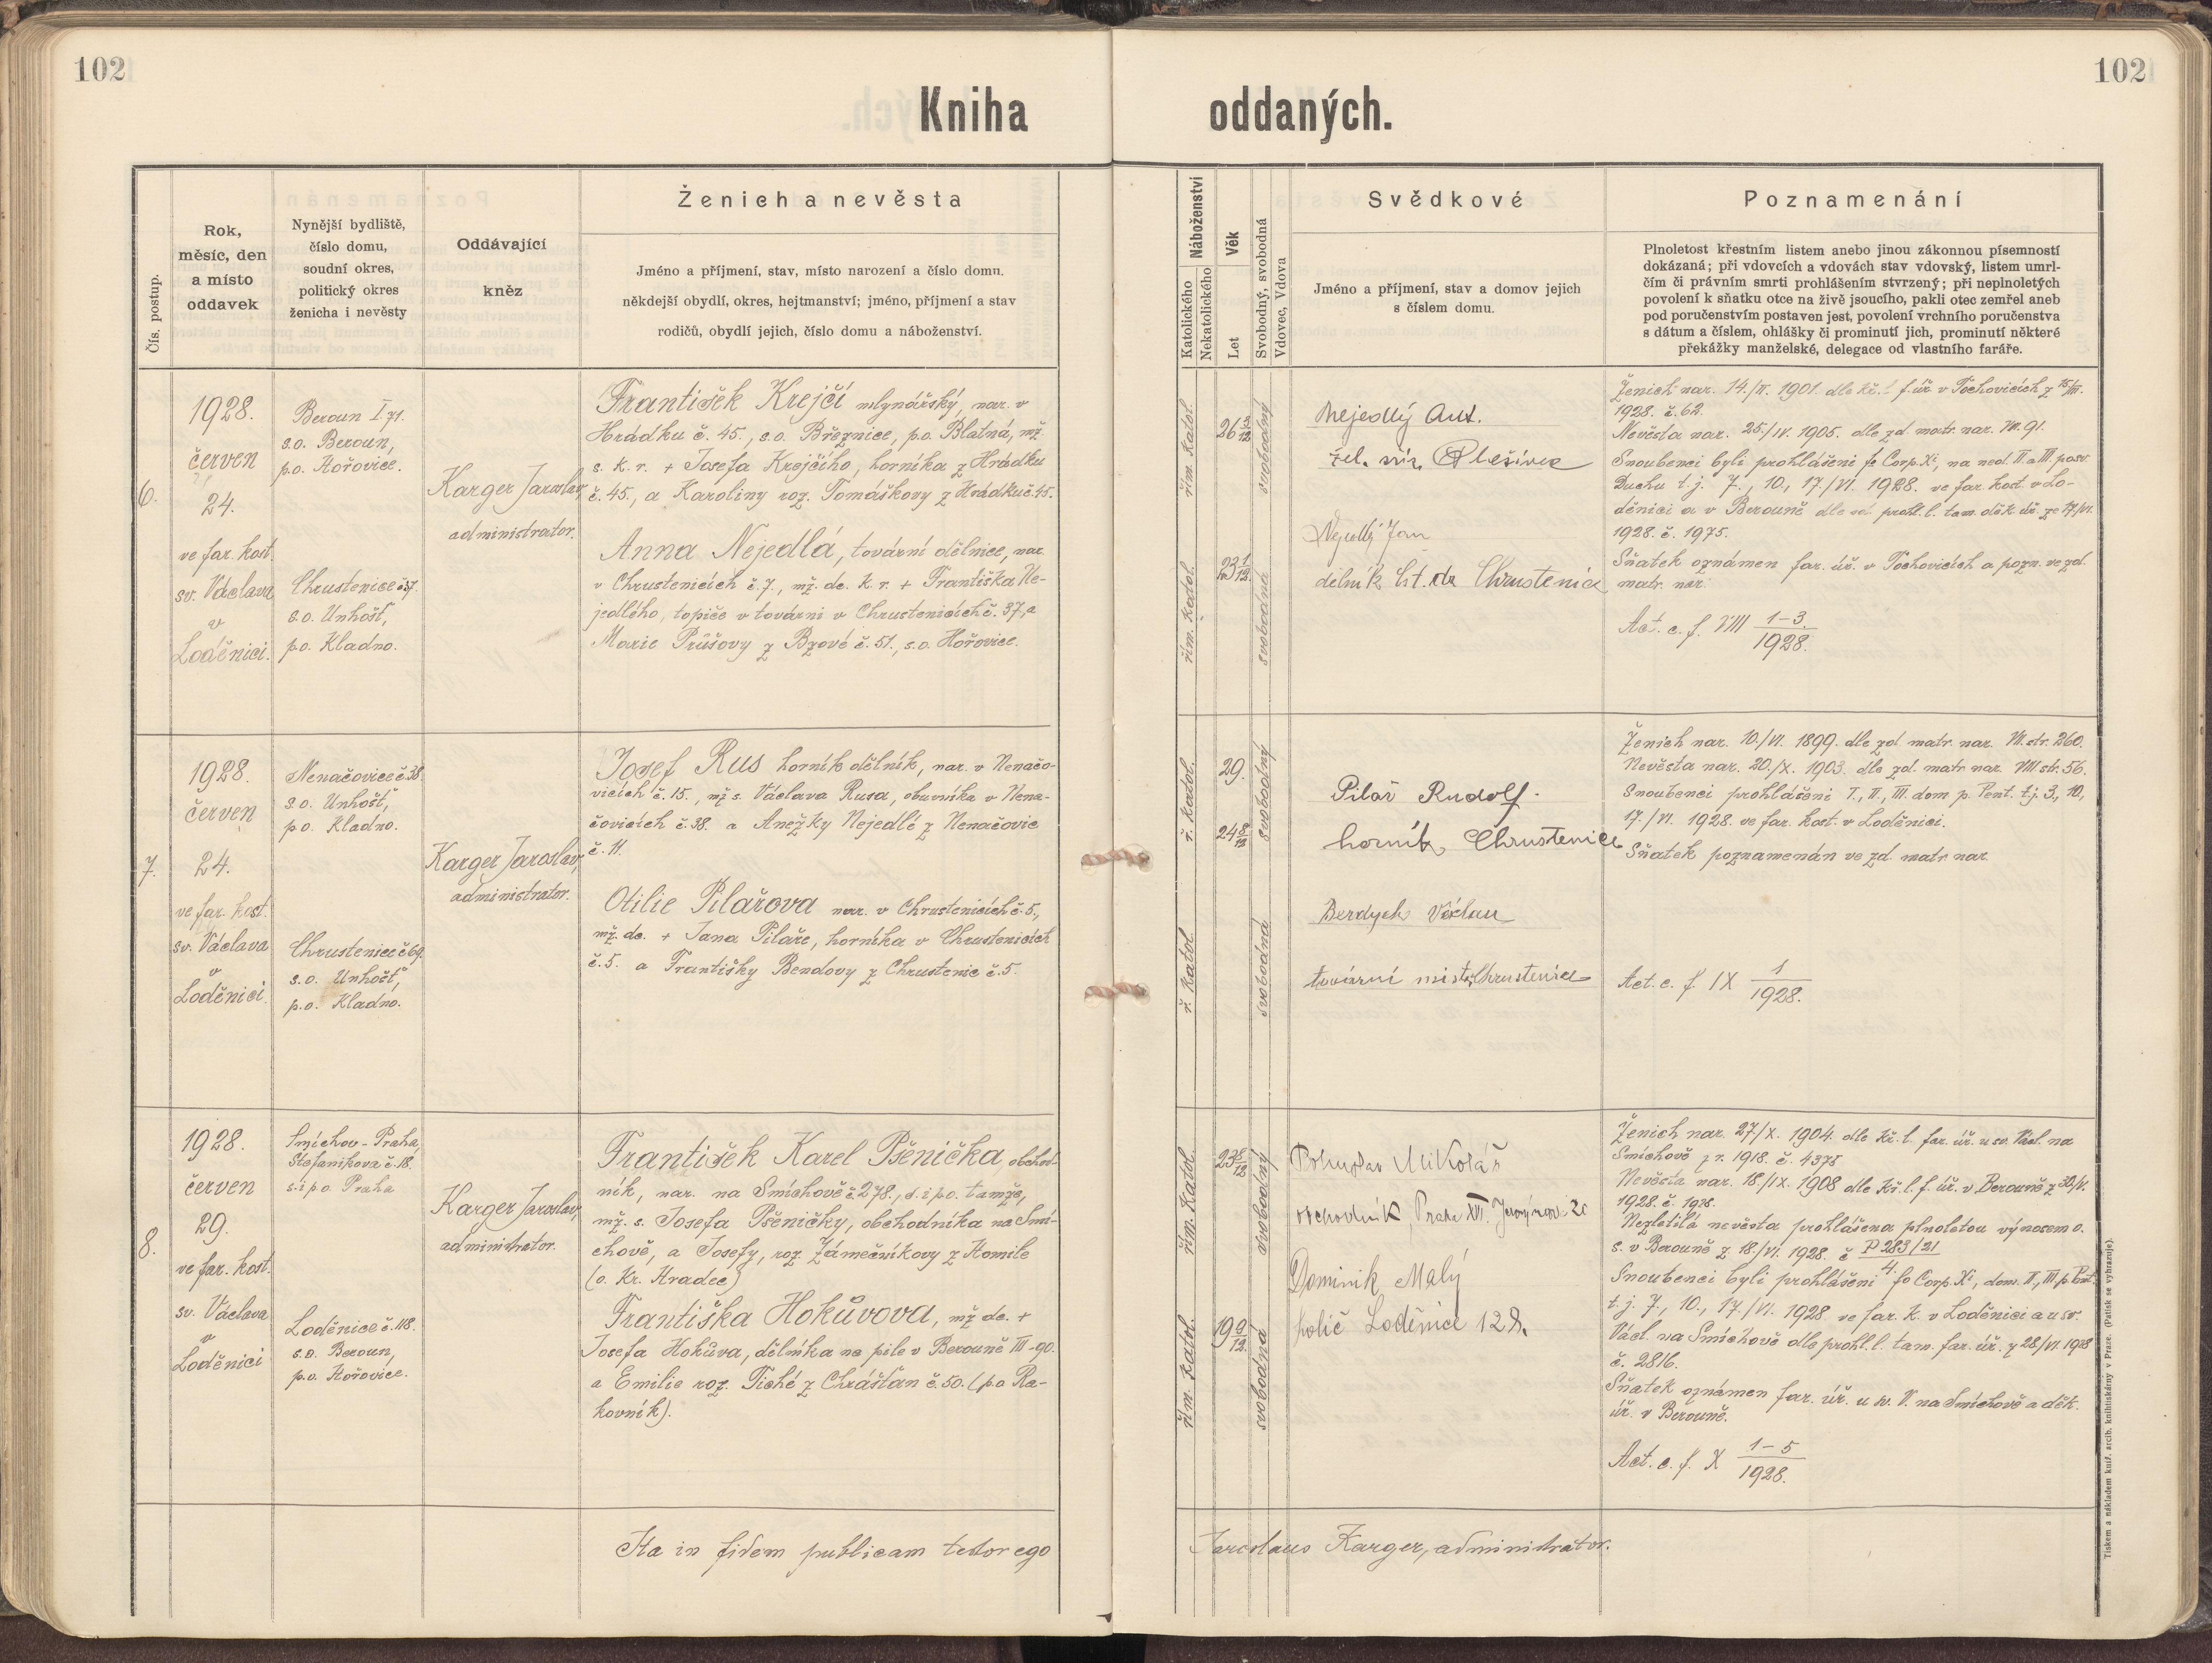 102
102
Kniha oddaných.
Čís. postup.
Rok,
měsíc, den
a místo
oddavek
Nynější bydliště,
číslo domu,
soudní okres,
politický okres
ženicha i nevěsty
Oddávající
kněz
Ženich a nevěsta
Jméno a příjmení, stav, místo narození a číslo domu.
někdejší obydlí, okres, hejtmanství; jméno, příjmení a stav
rodičů, obydlí jejich, číslo domu a náboženství.
Náboženství
Katolického
Nekatolického
Věk
Let
Svobodný, svobodná
Vdovec, Vdova
Svědkové
Jméno a příjmení, stav a domov jejich
s číslem domu.
Poznamenání
Plnoletost křestním listem anebo jinou zákonnou písemností
dokázaná; při vdovcích a vdovách stav vdovský, listem umrl-
čím či právním smrti prohlášením stvrzený; při neplnoletých
povolení k sňatku otce na živě jsoucího, pakli otec zemřel aneb
pod poručenstvím postaven jest, povolení vrchního poručenstva
s dátum a číslem, ohlášky či prominutí jich, prominutí některé
překážky manželské, delegace od vlastního faráře.
6.
1928.
červen
24.
ve far. kost.
sv. Václava
v
Loděnici.
Beroun I. 71.
s.o. Beroun,
p.o. Hořovice.
Chrustenice č. 37.
s.o. Unhošť,
p.o. Kladno.
Karger Jaroslav,
administrator.
František Krejčí mlynářský, nar. v
Hrádku č. 45., s.o. Březnice, p.o. Blatná, mž.
s. k. r. + Josefa Krejčího, horníka z Hrádku
č. 45., a Karoliny roz. Tomáškovy z Hrádku č. 45.
Anna Nejedlá, tovární dělnice, nar.
v Chrustenicích č. 7., mž. dc. k. r. + Františka Ne-
jedlého, topiče v továrni v Chrustenicích č. 37, a
Marie Průšovy z Bzové č. 51., s.o. Hořovice.
řím. katol.
řím. katol.
26
23 1/12
svobodný
svobodná
Nejedlý Ant.
žel. zříz. Plešivec
Nejedlý Jan
dělník Chrustenice
Ženich nar. 14./II. 1901. dle kř. l. f. úř. v Tochovicích z 15/III.
1928. č. 62.
Nevěsta nar. 25./IV. 1905. dle zd. matr. nar. VII. 91.
Snoubenci byli prohlášeni fo Corp. Xi, na ned. II a III. po sv.
Duchu t. j. 7., 10., 17./VI. 1928. ve far. kost. v Lo-
děnici a v Berouně dle prohl. l. tam. děk. úř. ze 17/VI.
1928. č. 1975.
Sňatek oznámen far. úř. v Tochovicích a pozn. ve zd.
matr. nar.
Act. c. f. VIII 1-3./1928.
7.
1928.
červen
24.
ve far. kost.
sv. Václava
v
Loděnici.
Nenačovice č. 38.
s.o. Unhošť,
p.o. Kladno.
Chrustenice č. 69.
s.o. Unhošť,
p.o. Kladno.
Karger Jaroslav,
administrator.
Josef Rus horník dělník, nar. v Nenačo-
vicích č. 15., mž. s. Václava Rusa, obuvníka v Nena-
čovicích č. 38. a Anežky Nejedlé z Nenačovic
č. 11.
Otilie Pilařova nar. v Chrustenicích č. 5.,
mž. dc. + Jana Pilaře, horníka v Chrustenicích
č. 5. a Františky Bendovy z Chrustenic č. 5.
ř. katol.
ř. katol.
29.
24 8/12
svobodný
svobodná
Pilař Rudolf.
horník, Chrustenice
Berdych Václav
tovární mistr Chrustenice
Ženich nar. 10./VI. 1899. dle zd. matr. nar. VII. str. 260.
Nevěsta nar. 20./X. 1903. dle zd. matr. nar. VIII str. 56.
Snoubenci prohlášeni I., II., III. dom p. Pent. t.j. 3., 10.,
17./VI. 1928. ve far. kost. v Loděnici.
Sňatek poznamenán ve zd. matr. nar.
Act. c. f. IX 1/1928.
8.
1928.
červen
29.
ve far. kost.
sv. Václava
v
Loděnici
Smíchov-Praha,
Štefanikova č. 18.
s. i p.o. Praha
Loděnice č. 118.
s.o. Beroun,
p.o. Hořovice.
Karger Jaroslav,
administrator.
František Karel Pšenička, obchod-
ník, nar. na Smíchově č. 278., s. i p.o. tamže,
mž. s. Josefa Pšeničky, obchodníka na Smí-
chově, a Josefy, roz. Zámečníkovy z Homile
(o. Kr. Hradec)
Františka Hokůvova, mž. dc. +
Josefa Hokůva, dělníka na pile v Berouně III-90.
a Emilie roz. Tiché z Chrášťan č. 50. (p.o Ra-
kovník).
řím. katol.
řím. katol.
23 8/12
19 9/12
svobodný
svobodná
Bohuslav Mikoláš
obchodník, Praha XVI.
Dominik Malý
holič Loděnice 128.
Ženich nar. 27/X. 1904. dle kř. l. far. úř. u sv. Václ. na
Smíchově z r. 1918. č. 4375
Nevěsta nar. 18/IX. 1908 dle kř. l. f. úř. v Berouně z 30/V.
1928. č.
Nezletilá nevěsta prohlášena plnoletou výnosem o.
s. v Berouně z 18./VI. 1928. č. P 283/21
4.
Snoubenci byli prohlášeni fo Corp. Xi, dom. II., III. p. Pent.
t. j. 7., 10., 17./VI. 1928 ve far. k. v Loděnici a u sv.
Václ. na Smíchově dle prohl. l. tam. far. úř. z 28/VI. 1928
č. 2816.
Sňatek oznámen far. úř. u sv. V. na Smíchově a děk.
úř. v Berouně.
Act. c. f. X 1-5/1928.
Ita in fidem publicam testor ego Jaroslaus Karger, administrator.
Tiskem a nákladem kníž. arcib. knihtiskárny v Praze. (Patisk se vyhrazuje).